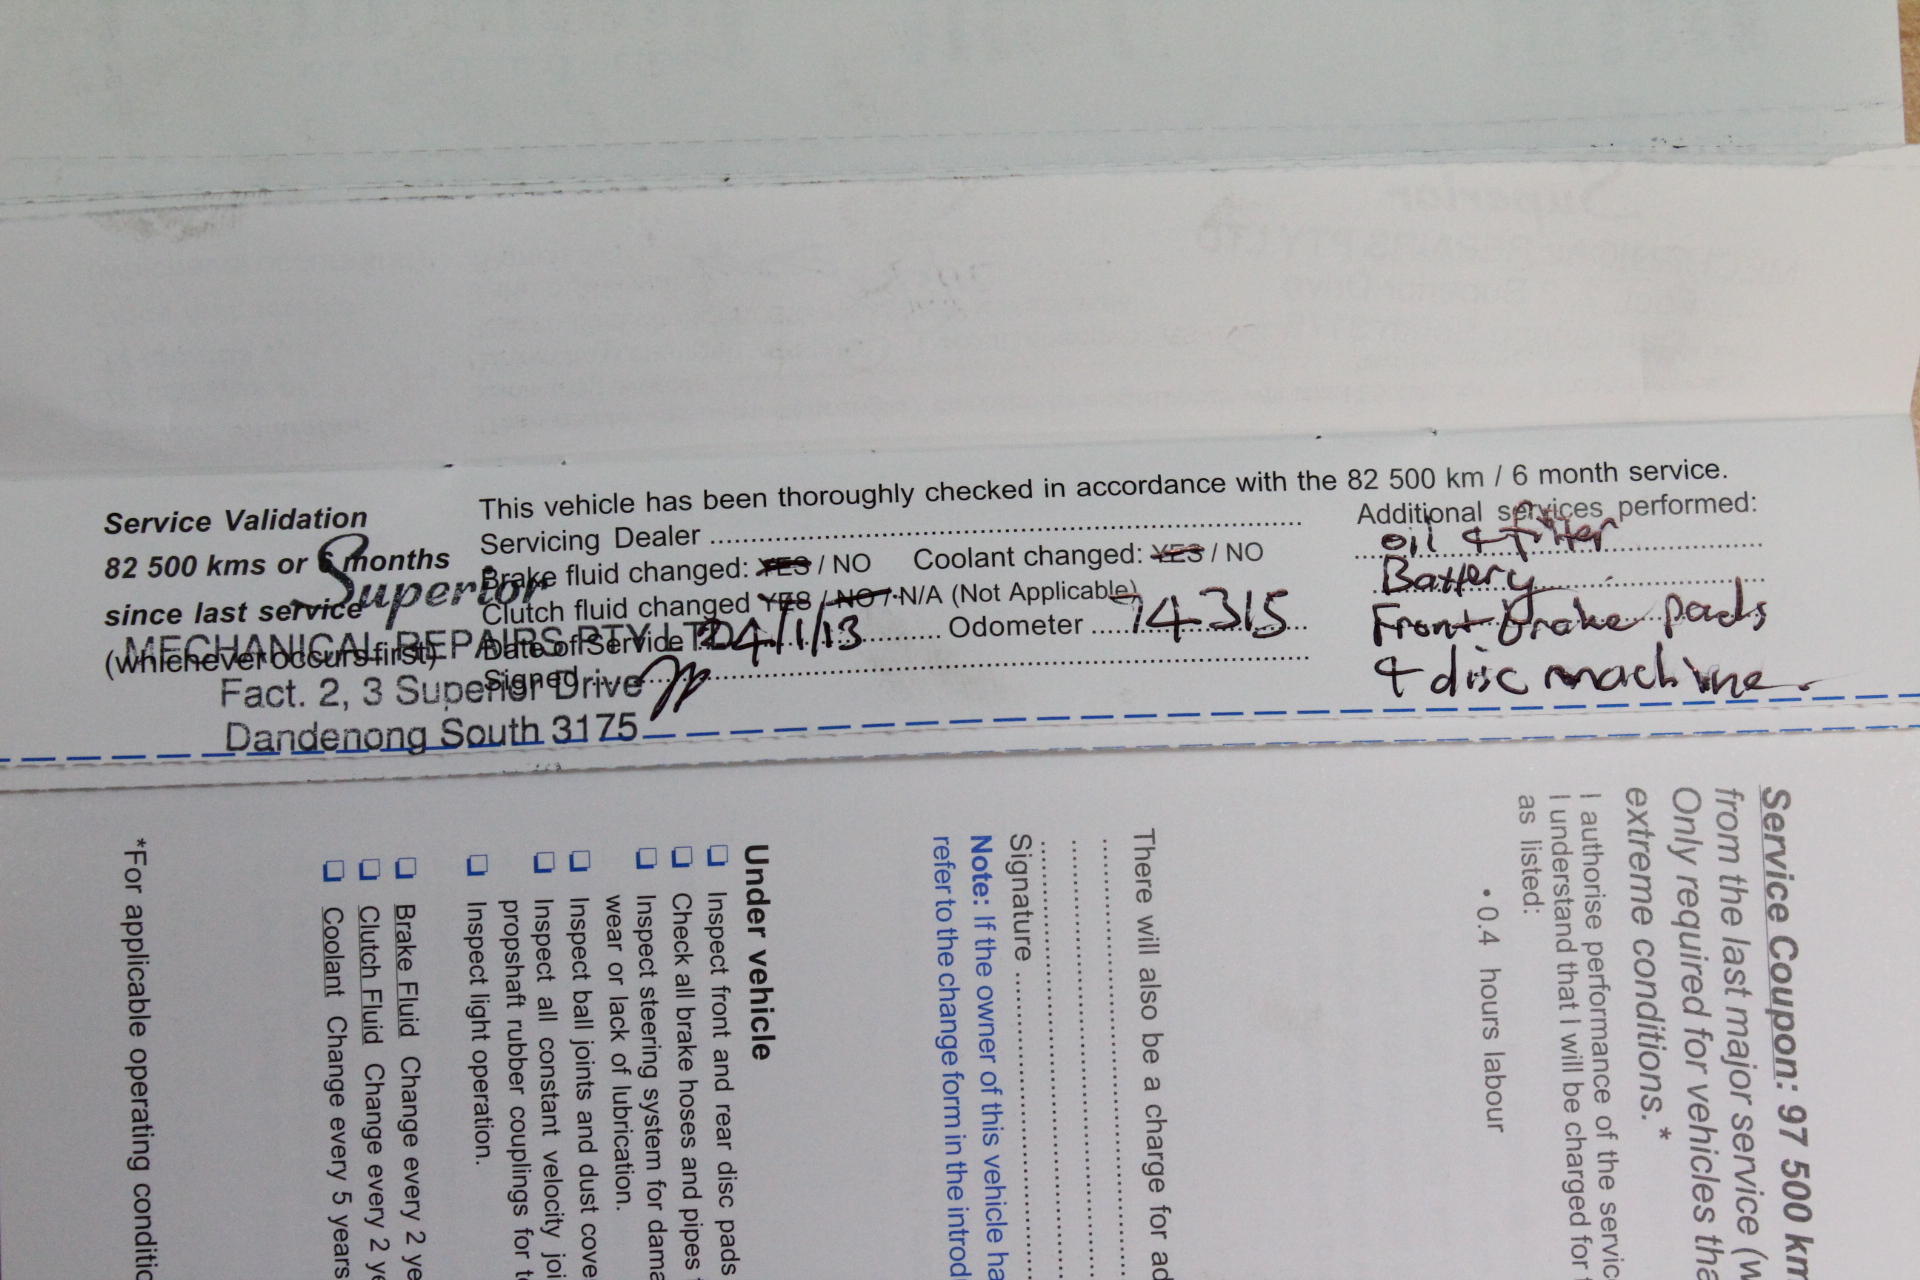 This vehicle has been thoroughly checked in accordance with the 82 500 km / 6 month service.
Service Validation
82 500 kms or 6 months
since last service
(whichever occurs first)
Servicing Dealer
Brake fluid changed: YES / NO Coolant changed: YES / NO
Clutch fluid changed YES / NO / N/A (Not Applicable)
Date of Service 24/1/13 Odometer 74315
Signed
Additional services performed:
oil & filter
Battery
Front brake pads
& disc machine.
Superior
MECHANICAL REPAIRS PTY LTD
Fact. 2, 3 Superior Drive
Dandenong South 3175
Service Coupon: 97 500 km
from the last major service (w
Only required for vehicles tha
extreme conditions. *
I authorise performance of the servic
I understand that I will be charged for
as listed:
• 0.4 hours labour
There will also be a charge for ad
Signature
Note: If the owner of this vehicle ha
refer to the change form in the introd
Under vehicle
Inspect front and rear disc pads
Check all brake hoses and pipes
Inspect steering system for dama
wear or lack of lubrication.
Inspect ball joints and dust cove
Inspect all constant velocity joi
propshaft rubber couplings for t
Inspect light operation.
Brake Fluid Change every 2 ye
Clutch Fluid Change every 2 ye
Coolant Change every 5 years
*For applicable operating conditio